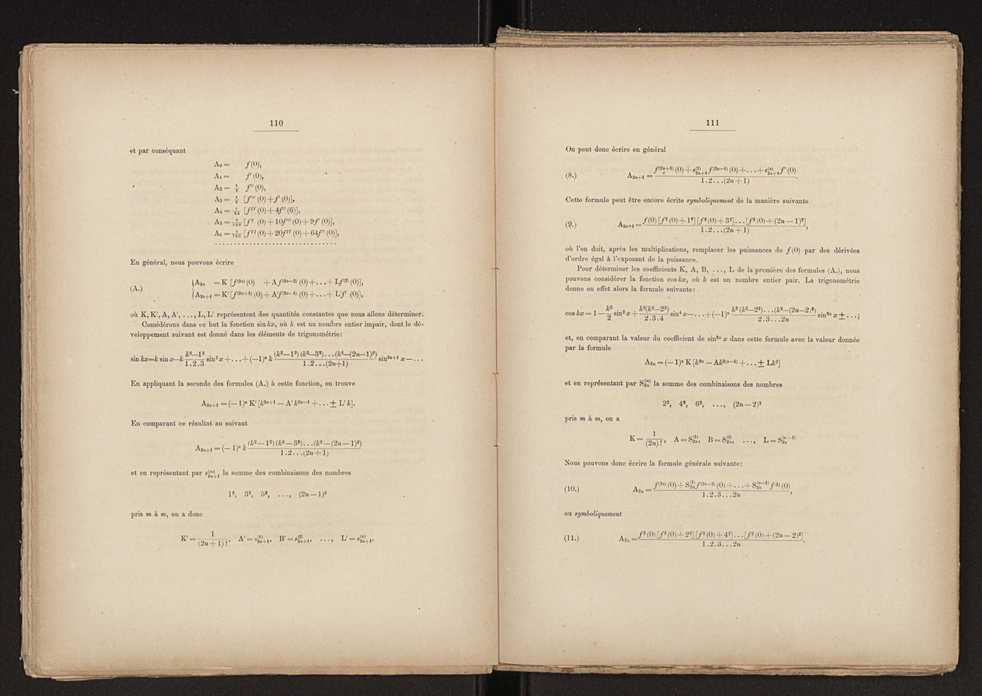 110
et par conséquant
A₀ = f(0),
A₁ = f′(0),
A₂ = ½ f″(0),
[f‴(0)+f′(0)],
(0)+4f″(0)],
(0)+10f‴(0)+9f′(0)],
(0)+64f″(0)],
En général, nous pouvons écrire
(A.) { A₂ₙ = K [f⁽²ⁿ⁾(0) + A f⁽²ⁿ⁻²⁾(0)+...+ Lf⁽²⁾(0)],
A₂ₙ₊₁ = K′[f⁽²ⁿ⁺¹⁾(0)+A′f⁽²ⁿ⁻¹⁾(0)+...+ L′f′(0)],
où K, K′, A, A′, ..., L, L′ représentent des quantités constantes que nous allons déterminer.
Considérons dans ce but la fonction sin kx, où k est un nombre entier impair, dont le dé-
veloppement suivant est donné dans les éléments de trigonométrie:
sin kx=k sin x−k (k²−1²)/(1.2.3) sin³ x+...+(−1)ⁿ k ((k²−1²)(k²−3²)...(k²−(2n−1)²))/(1.2...(2n+1)) sin²ⁿ⁺¹ x−...
En appliquant la seconde des formules (A.) à cette fonction, on trouve
A₂ₙ₊₁ = (−1)ⁿ K′[k²ⁿ⁺¹ − A′k²ⁿ⁻¹ +...± L′k].
En comparant ce résultat au suivant
A₂ₙ₊₁ = (−1)ⁿ k ((k²−1²)(k²−3²)...(k²−(2n−1)²))/(1.2...(2n+1))
et en représentant par s₂ₙ₊₁⁽ᵐ⁾ la somme des combinaisons des nombres
1², 3², 5², ..., (2n−1)²
pris m à m, on a donc
K′ = 1/(2n+1)!, A′ = s₂ₙ₊₁⁽¹⁾, B′ = s₂ₙ₊₁⁽²⁾, ..., L′ = s₂ₙ₊₁⁽ⁿ⁾.
111
On peut donc écrire en général
(8.) A₂ₙ₊₁ = (f⁽²ⁿ⁺¹⁾(0)+s₂ₙ₊₁⁽¹⁾ f⁽²ⁿ⁻¹⁾(0)+...+s₂ₙ₊₁⁽ⁿ⁾ f′(0))/(1.2...(2n+1))
Cette formule peut être encore écrite symboliquement de la manière suivante
(9.) A₂ₙ₊₁ = (f(0)[f²(0)+1²][f²(0)+3²]...[f²(0)+(2n−1)²])/(1.2...(2n+1)),
où l'on doit, après les multiplications, remplacer les puissances de f(0) par des dérivées
d'ordre égal à l'exposant de la puissance.
Pour déterminer les coefficients K, A, B, ..., L de la première des formules (A.), nous
pouvons considérer la fonction cos kx, où k est un nombre entier pair. La trigonométrie
donne en effet alors la formule suivante:
cos kx = 1 − k²/2 sin² x + (k²(k²−2²))/(2.3.4) sin⁴ x−...+(−1)ⁿ (k²(k²−2²)...(k²−(2n−2)²))/(2.3...2n) sin²ⁿ x ± ...;
et, en comparant la valeur du coefficient de sin²ⁿ x dans cette formule avec la valeur donnée
par la formule
A₂ₙ = (−1)ⁿ K [k²ⁿ − Ak²⁽ⁿ⁻¹⁾ +...± Lk²]
et en représentant par S₂ₙ⁽ᵐ⁾ la somme des combinaisons des nombres
2², 4², 6², ..., (2n−2)²
pris m à m, on a
K = 1/(2n)!, A = S₂ₙ⁽¹⁾, B = S₂ₙ⁽²⁾, ..., L = S₂ₙ⁽ⁿ⁻¹⁾
Nous pouvons donc écrire la formule générale suivante:
(10.) A₂ₙ = (f⁽²ⁿ⁾(0)+S₂ₙ⁽¹⁾ f⁽²ⁿ⁻²⁾(0)+...+S₂ₙ⁽ⁿ⁻¹⁾ f⁽²⁾(0))/(1.2.3...2n),
ou symboliquement
(11.) A₂ₙ = (f²(0)[f²(0)+2²][f²(0)+4²]...[f²(0)+(2n−2)²])/(1.2.3...2n).